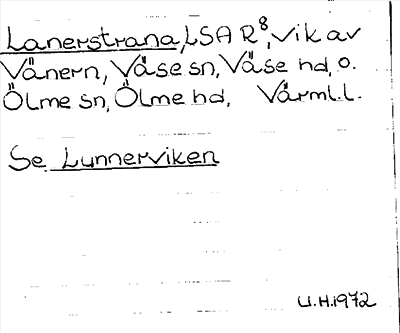 Lanerstrana, LSA R⁸, vik av
Vänern, Väse sn, Väse hd, o.
Ölme sn, Ölme hd, Värml.l.
Se Lunnerviken
U.H.1972